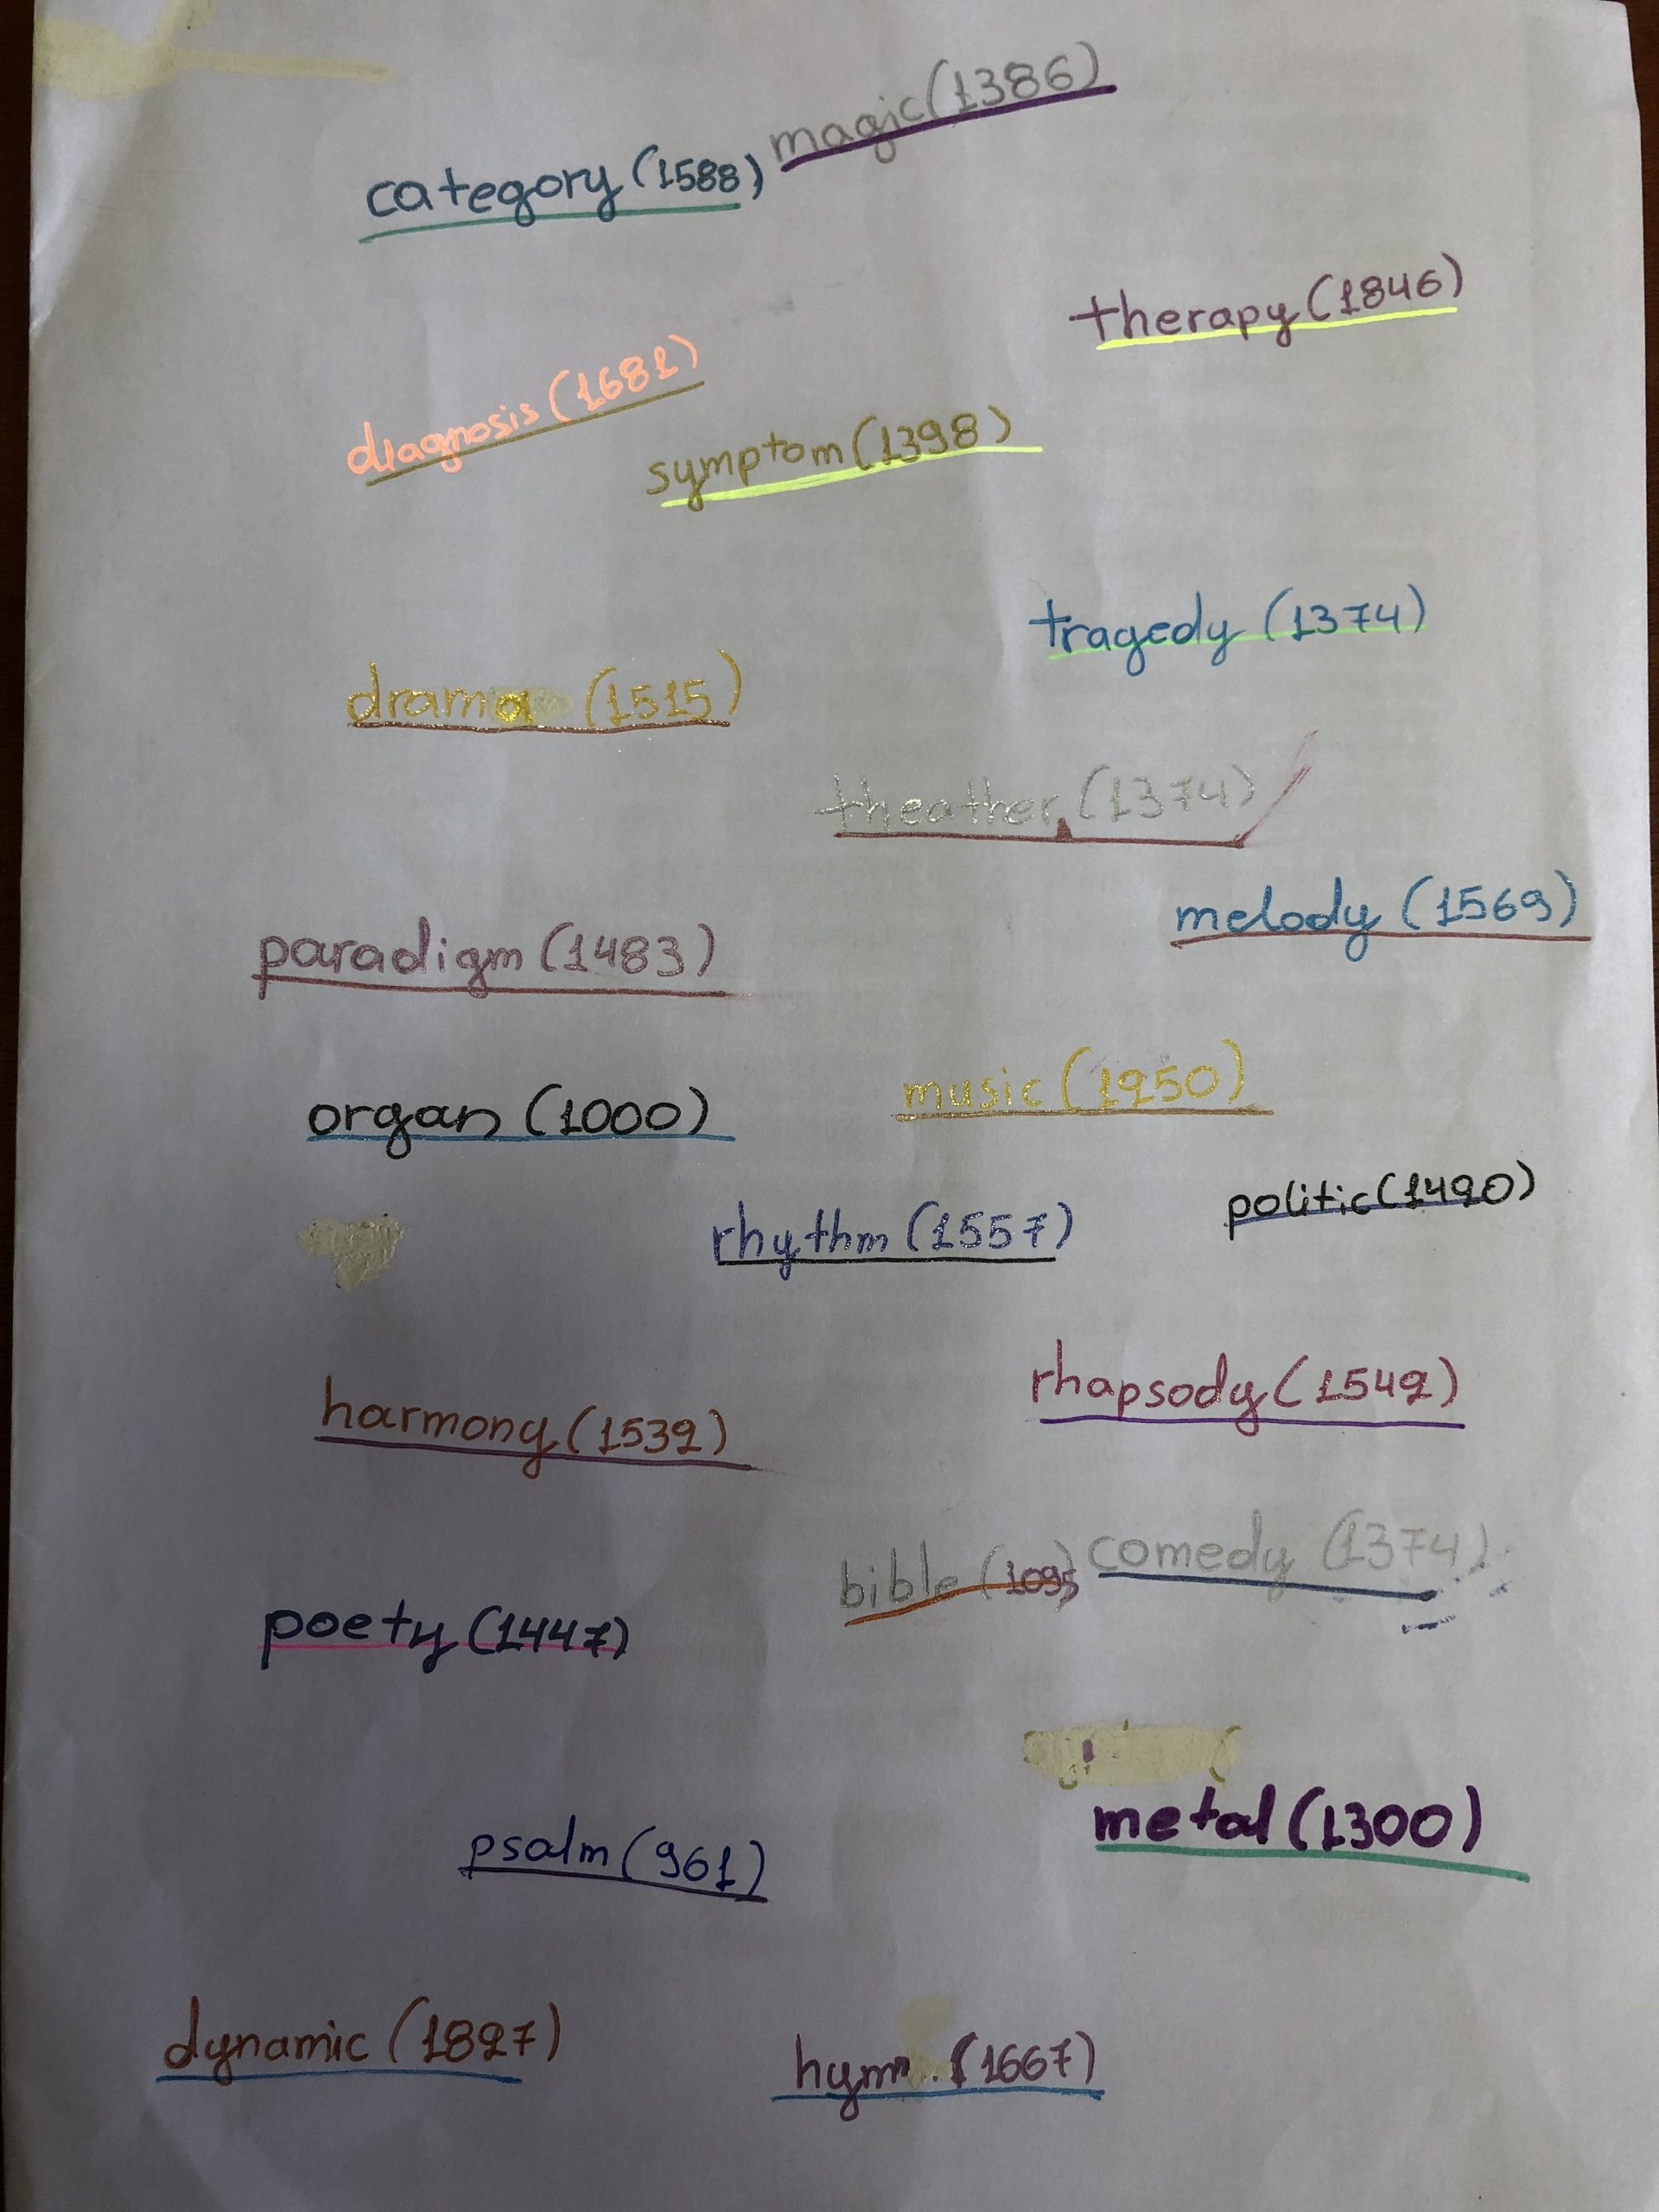 magic (1386)
category (1588)
therapy (1846)
diagnosis (1681)
symptom (1398)
tragedy (1374)
drama (1515)
theather (1374)
melody (1569)
paradigm (1483)
music (1250)
organ (1000)
politic (1420)
rhythm (1557)
rhapsody (1542)
harmony (1532)
comedy (1374)
bible (1095)
poety (1447)
metal (1300)
psalm (961)
dynamic (1827)
hymn (1667)